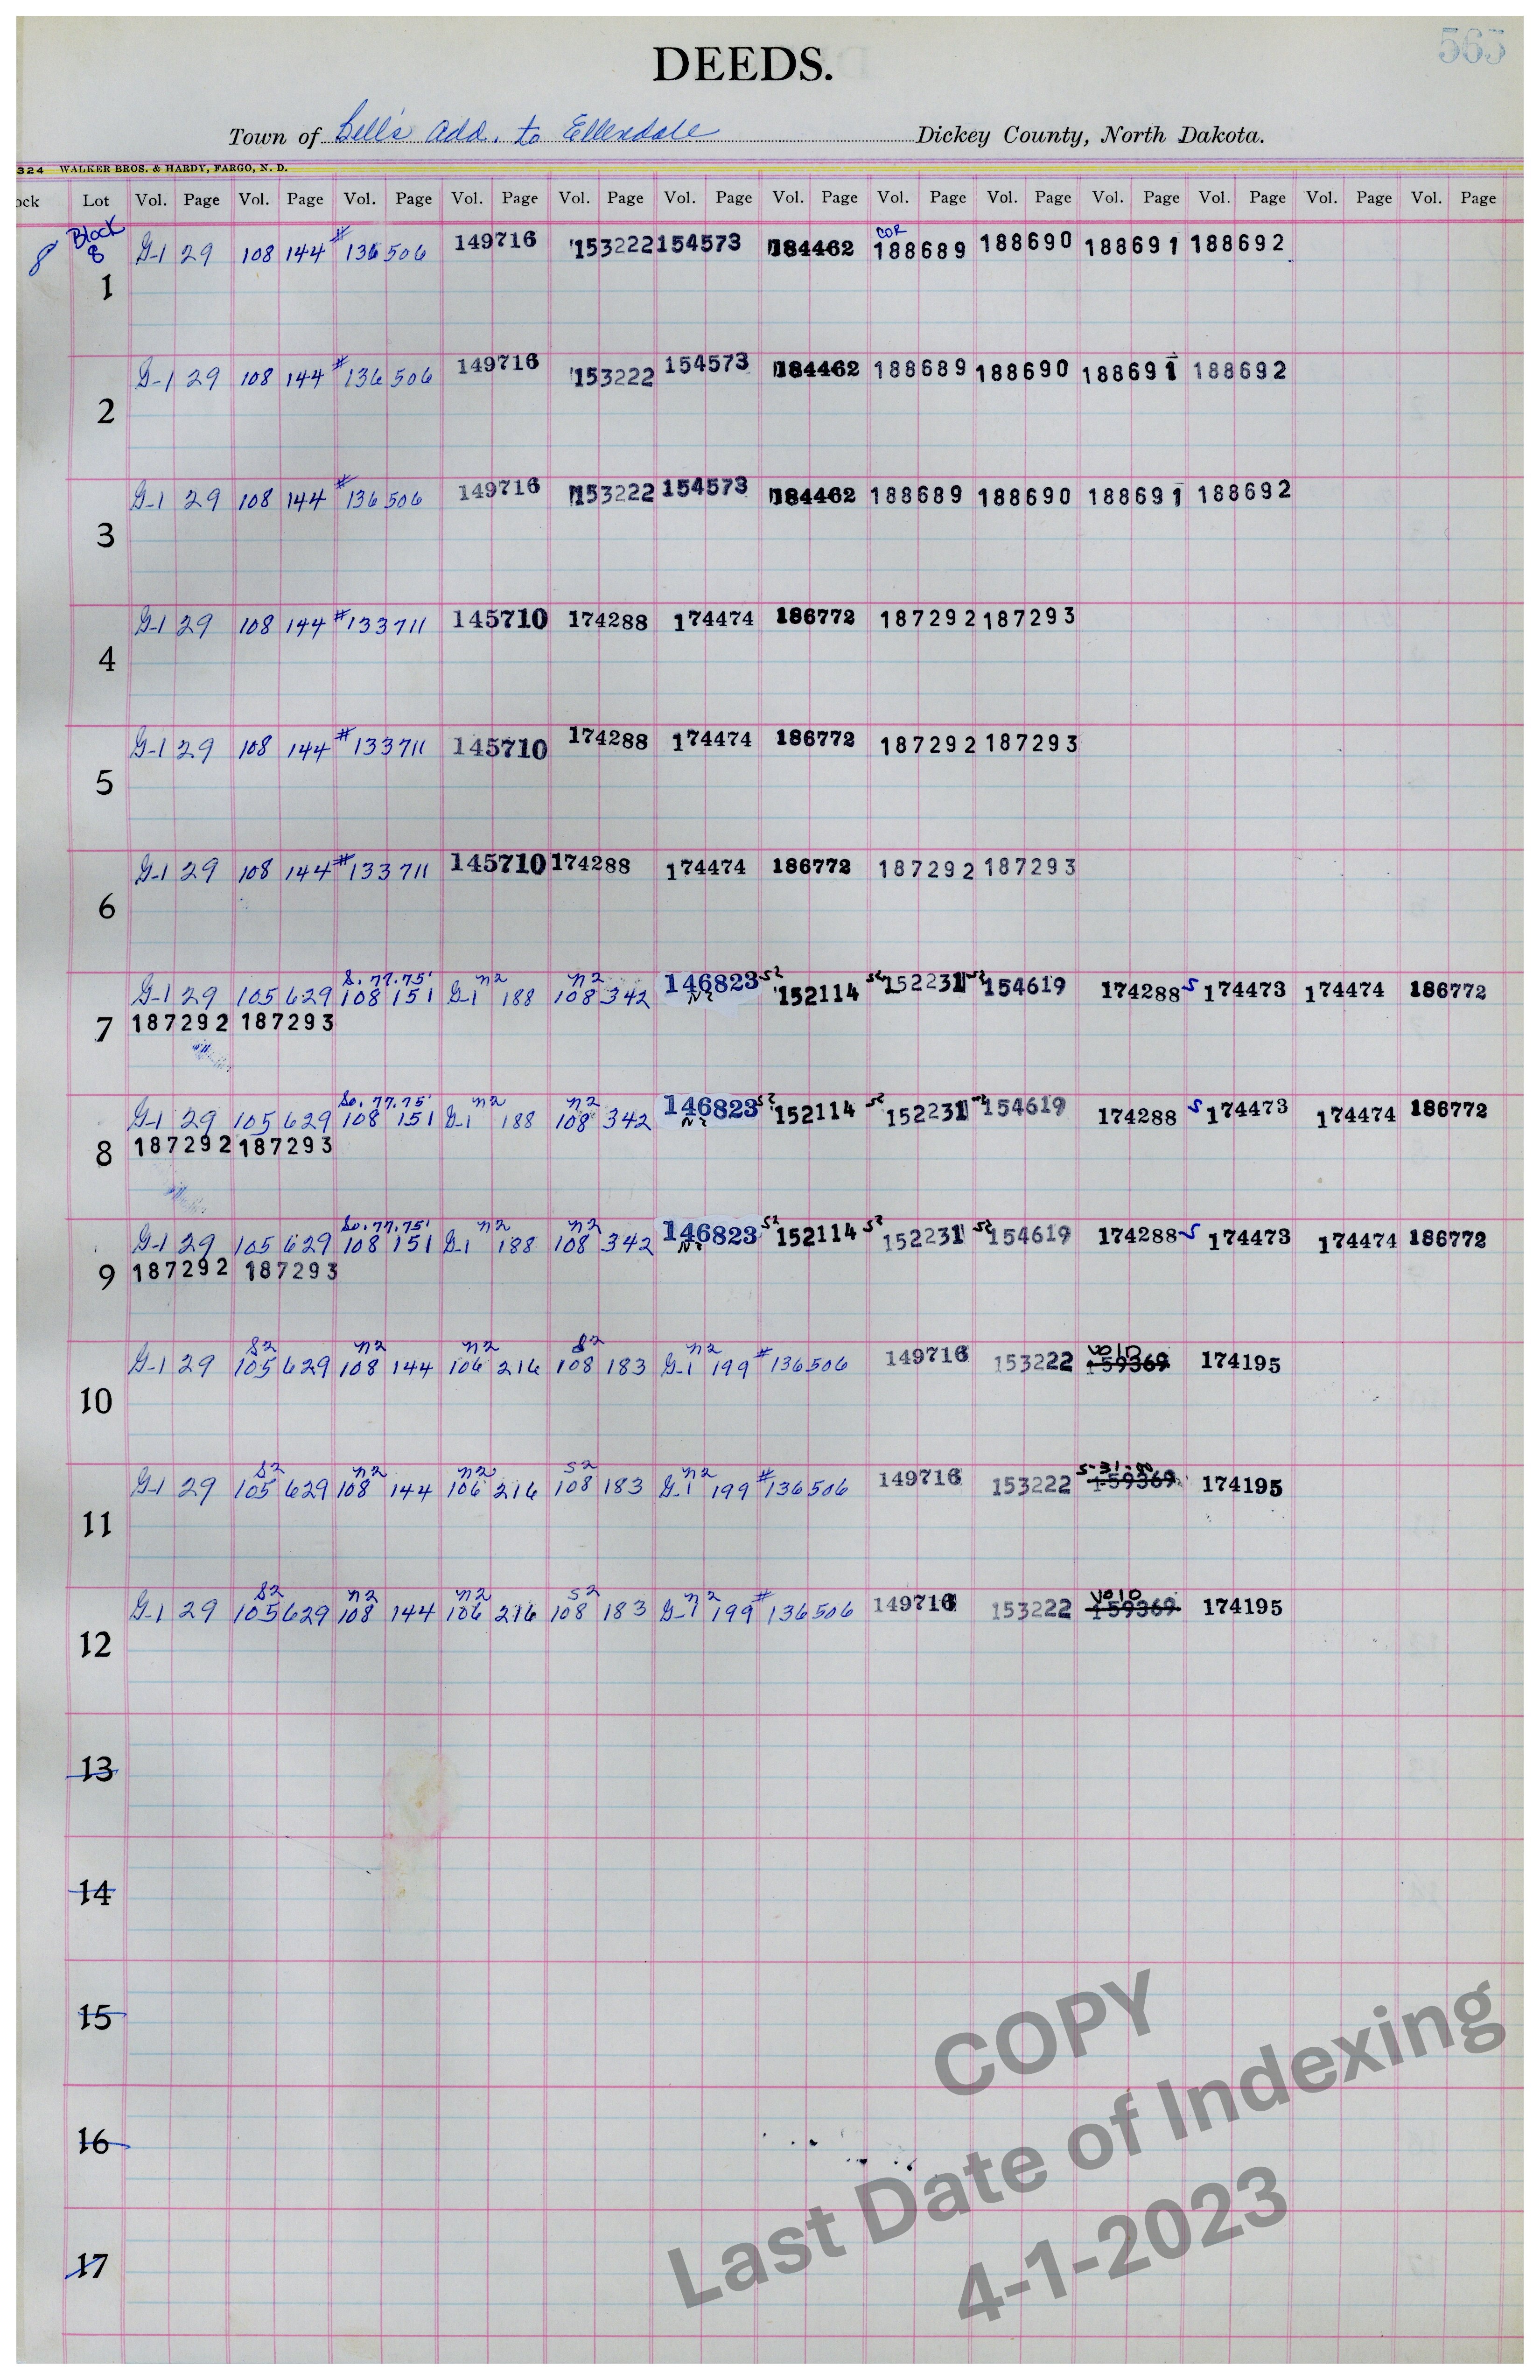 565
DEEDS.
Town of Bell's Add. to Ellendale Dickey County, North Dakota.
324 WALKER BROS. & HARDY, FARGO, N. D.
ock Lot Vol. Page Vol. Page Vol. Page Vol. Page Vol. Page Vol. Page Vol. Page Vol. Page Vol. Page Vol. Page Vol. Page Vol. Page Vol. Page
Block COR
8 8 G-1 29 108 144 # 136506 149716 153222 154573 184462 188689 188690 188691 188692
1
G-1 29 108 144 # 136506 149716 153222 154573 184462 188689 188690 188691 188692
2
G-1 29 108 144 # 136506 149716 153222 154573 184462 188689 188690 188691 188692
3
G-1 29 108 144 # 133711 145710 174288 174474 186772 187292 187293
4
G-1 29 108 144 # 133711 145710 174288 174474 186772 187292 187293
5
G-1 29 108 144 # 133711 145710 174288 174474 186772 187292 187293
6
S. 77.75' n2 n2
G-1 29 105 629 108 151 G-1 188 108 342 146823 N2 S2 152114 S2 152231 S2 154619 174288 S 174473 174474 186772
187292 187293
7
So. 77.75' n2 n2
G-1 29 105 629 108 151 G-1 188 108 342 146823 N2 S2 152114 S2 152231 154619 174288 S 174473 174474 186772
187292 187293
8
So. 77.75' n2 n2
G-1 29 105 629 108 151 G-1 188 108 342 146823 N2 S2 152114 S2 152231 S2 154619 174288 S 174473 174474 186772
187292 187293
9
S2 n2 n2 S2 n2 VOID
G-1 29 105 629 108 144 106 216 108 183 G-1 199 # 136506 149716 153222 159369 174195
10
S2 n2 n2 S2 n2 5-31-90
G-1 29 105 629 108 144 106 216 108 183 G-1 199 # 136506 149716 153222 159369 174195
11
S2 n2 n2 S2 n2 VOID
G-1 29 105 629 108 144 106 216 108 183 G-1 199 # 136506 149716 153222 159369 174195
12
13
14
15
16
17
COPY
Last Date of Indexing
4-1-2023